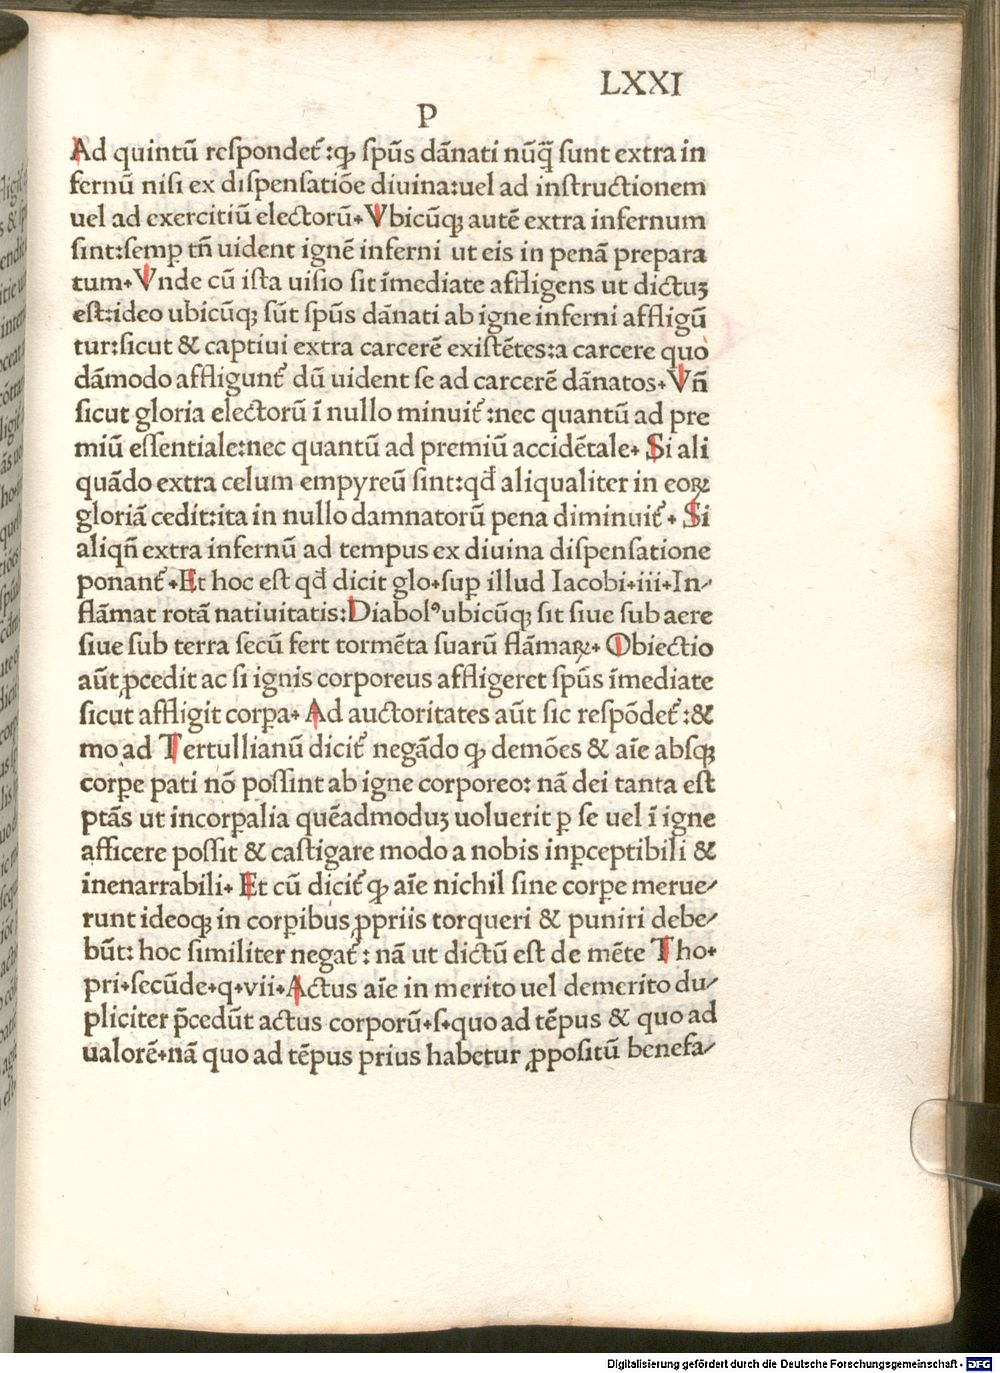 LXXI
P
Ad quintū respondet᷑:ꝙ spūs dānati nūq̄ sunt extra in
fernū nisi ex dispensatiōe diuina:uel ad instructionem
uel ad exercitiū electorū. Vbicūqꝫ autē extra infernum
sint:semp̱ tn̄ uident ignē inferni ut eis in penā prepara
tum. Vnde cū ista uisio sit īmediate affligens ut dictuꝫ
est:ideo ubicūqꝫ sūt spūs dānati ab igne inferni affligū
tur:sicut & captiui extra carcerē existētes:a carcere quo
dāmodo affligunt᷑ dū uident se ad carcerē dānatos. Vn̄
sicut gloria electorū ī nullo minuit᷑:nec quantū ad pre
miū essentiale:nec quantū ad premiū accidētale. Si ali
quādo extra celum empyreū sint:qd̄ aliqualiter in eoꝝ
gloriā cedit:ita in nullo damnatorū pena diminuit᷑. Si
aliqn̄ extra infernū ad tempus ex diuina dispensatione
ponant᷑. Et hoc est qd̄ dicit glo.suꝑ illud Iacobi.iii.In/
flāmat rotā natiuitatis:Diabolꝰ ubicūqꝫ sit siue sub aere
siue sub terra secū fert tormēta suarū flāmaꝝ. Obiectio
aūt ꝓcedit ac si ignis corporeus affligeret spūs īmediate
sicut affligit corꝑa. Ad auctoritates aūt sic respōdet᷑:&
mo ad Tertullianū dicit᷑ negādo ꝙ demōes & aīe absqꝫ
corꝑe pati nō possint ab igne corporeo: nā dei tanta est
ptās ut incorꝑalia quēadmoduꝫ uoluerit ꝑ se uel ī igne
afficere possit & castigare modo a nobis inꝑceptibili &
inenarrabili. Et cū dicit᷑ ꝙ aīe nichil sine corꝑe merue/
runt ideoqꝫ in corꝑibus ꝓpriis torqueri & puniri debe/
būt: hoc similiter negat᷑: nā ut dictū est de mēte Tho.
pri.secūde.q.vii.Actus aīe in merito uel demerito du/
pliciter p̄cedūt actus corporū.s.quo ad tēpus & quo ad
ualorē.nā quo ad tēpus prius habetur ꝓpositū benefa/
Digitalisierung gefördert durch die Deutsche Forschungsgemeinschaft - DFG